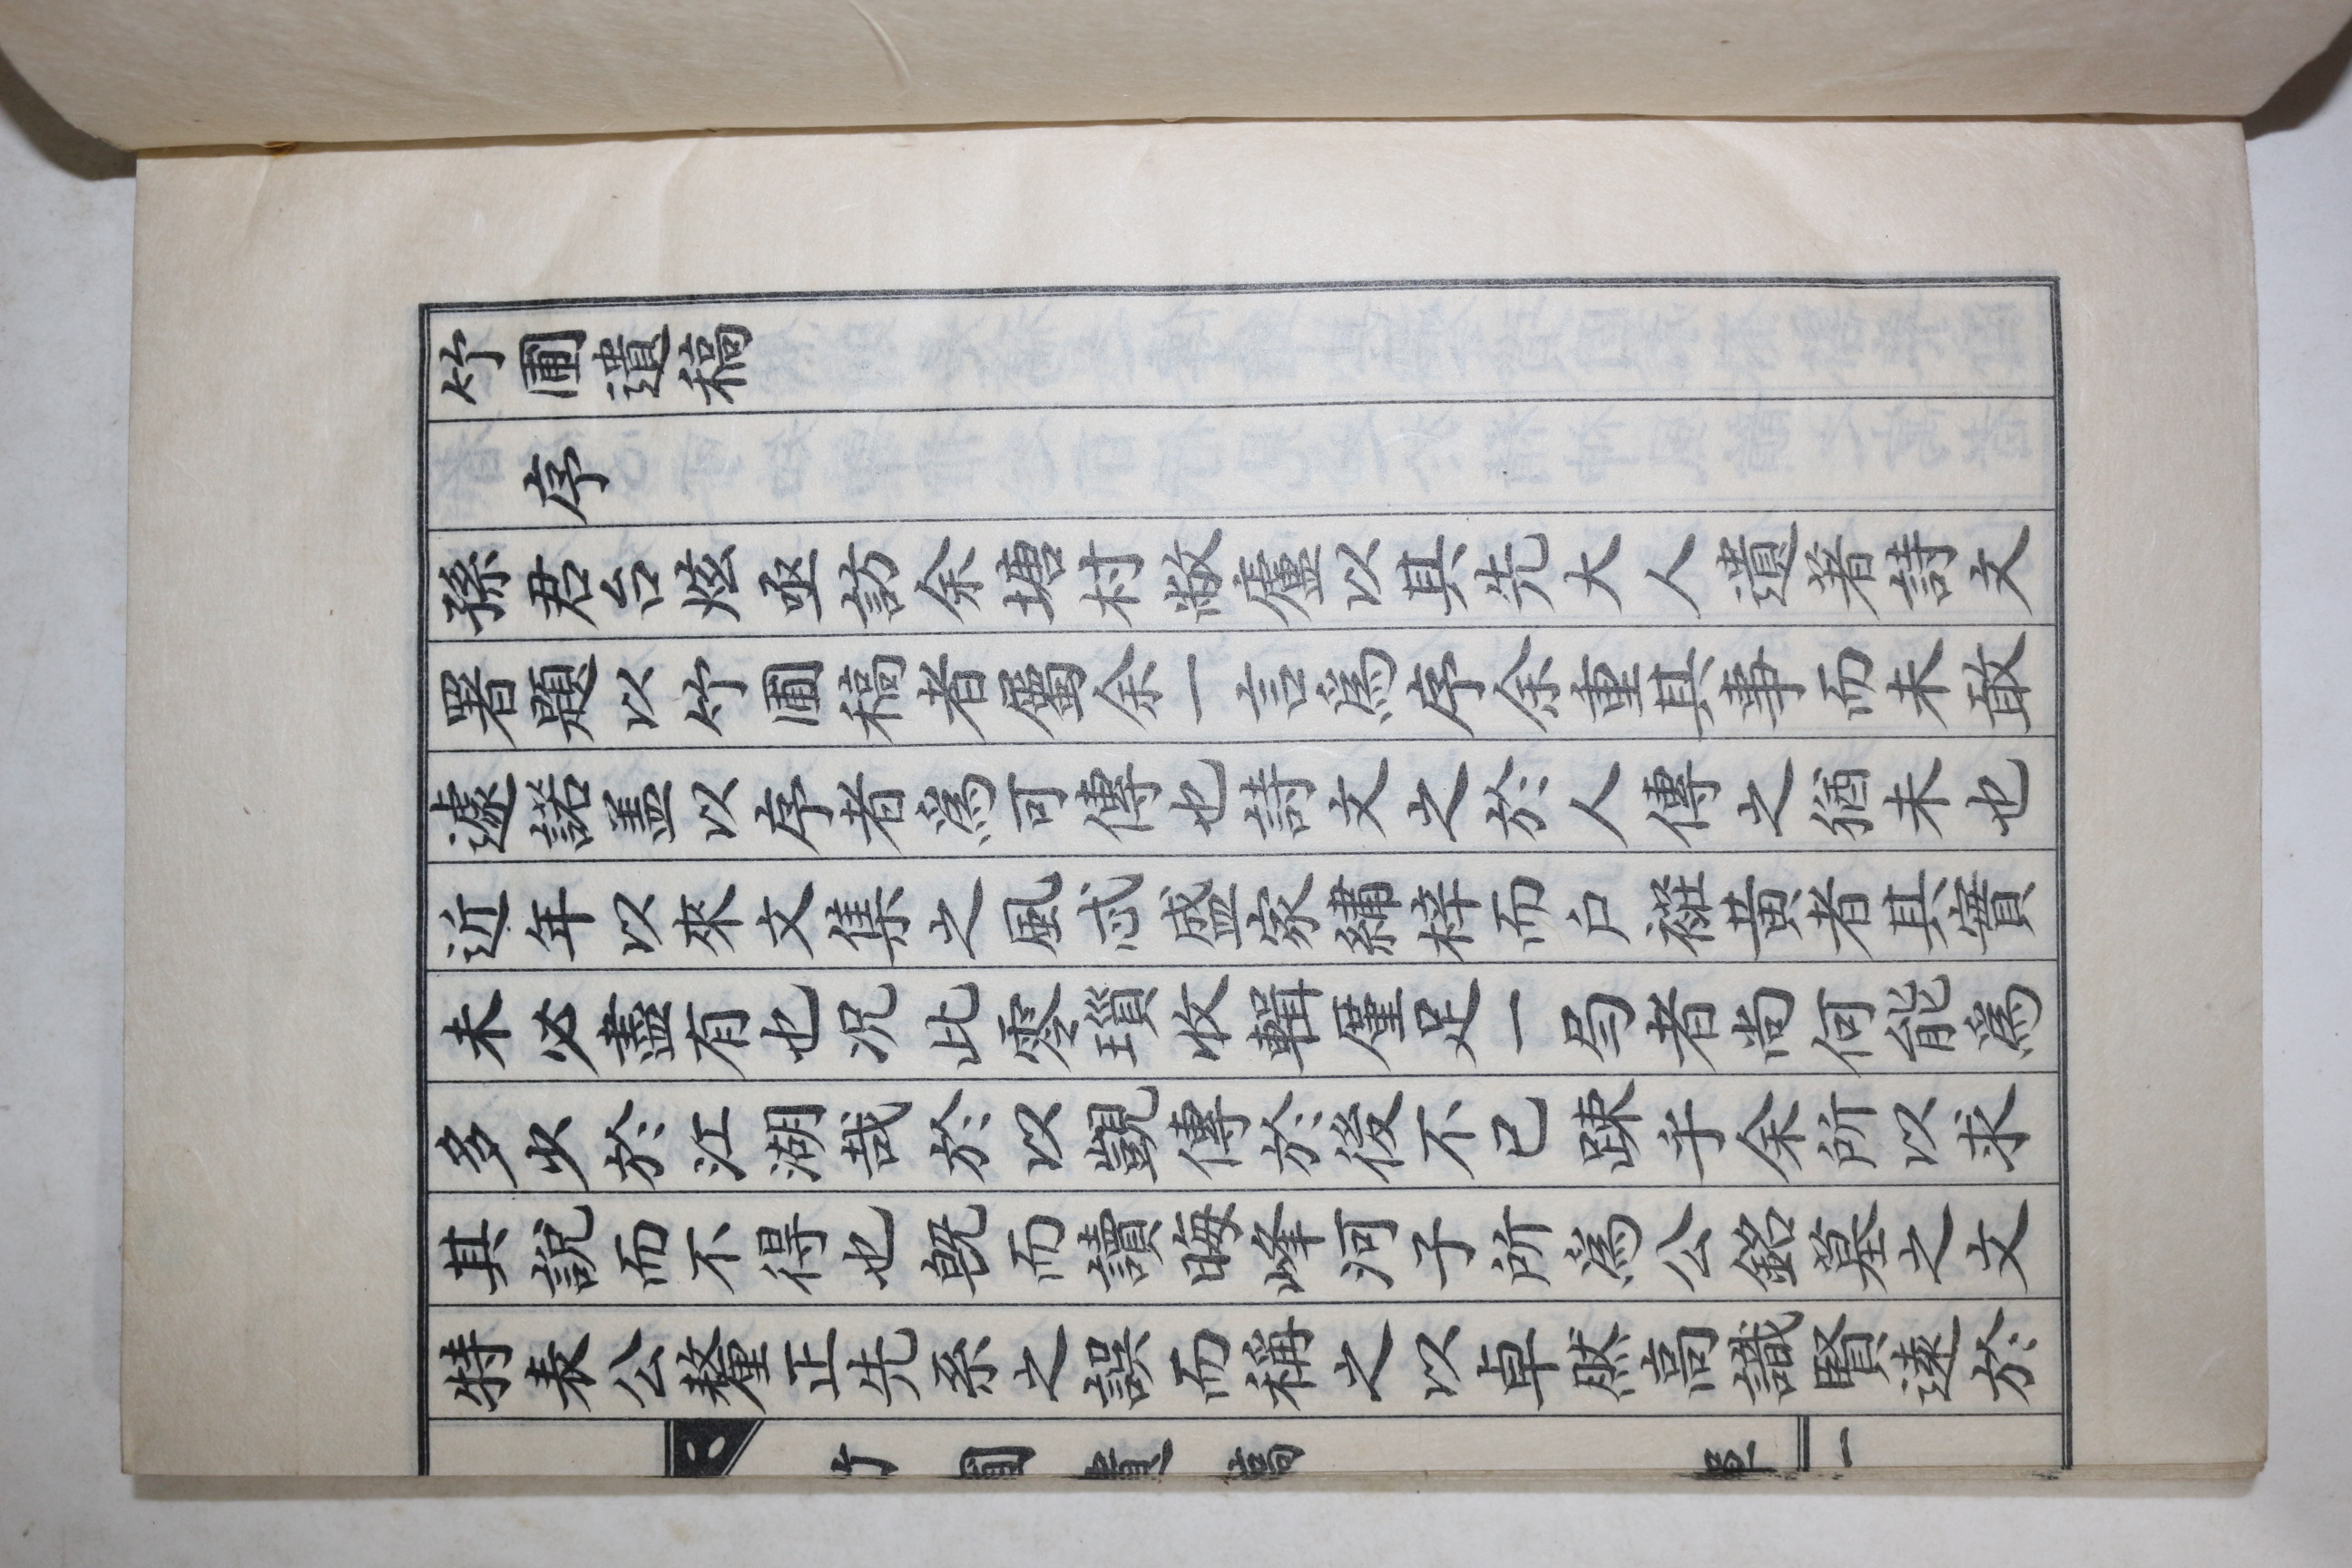 竹圃遺稿
序
孫君台炫亟訪余塘村敝廬以其先大人遺著詩文
署題以竹圃稿者屬余一言爲序余重其事而未敢
遽諾盖以序者爲可傳也詩文之於人傳之猶未也
近年以來文集之風忒盛家繡梓而户褫黄者其實
未必盡有也况此零瑣收輯厪足一弓者尚何能爲
多少於江湖哉於以覬傳於後不已踈乎余所以求
其說而不得也旣而讀晦峰河子所爲公銘墓之文
特表公釐正先系之誤而稱之以卓然高識賢遠於
竹圃遺稿
單
一